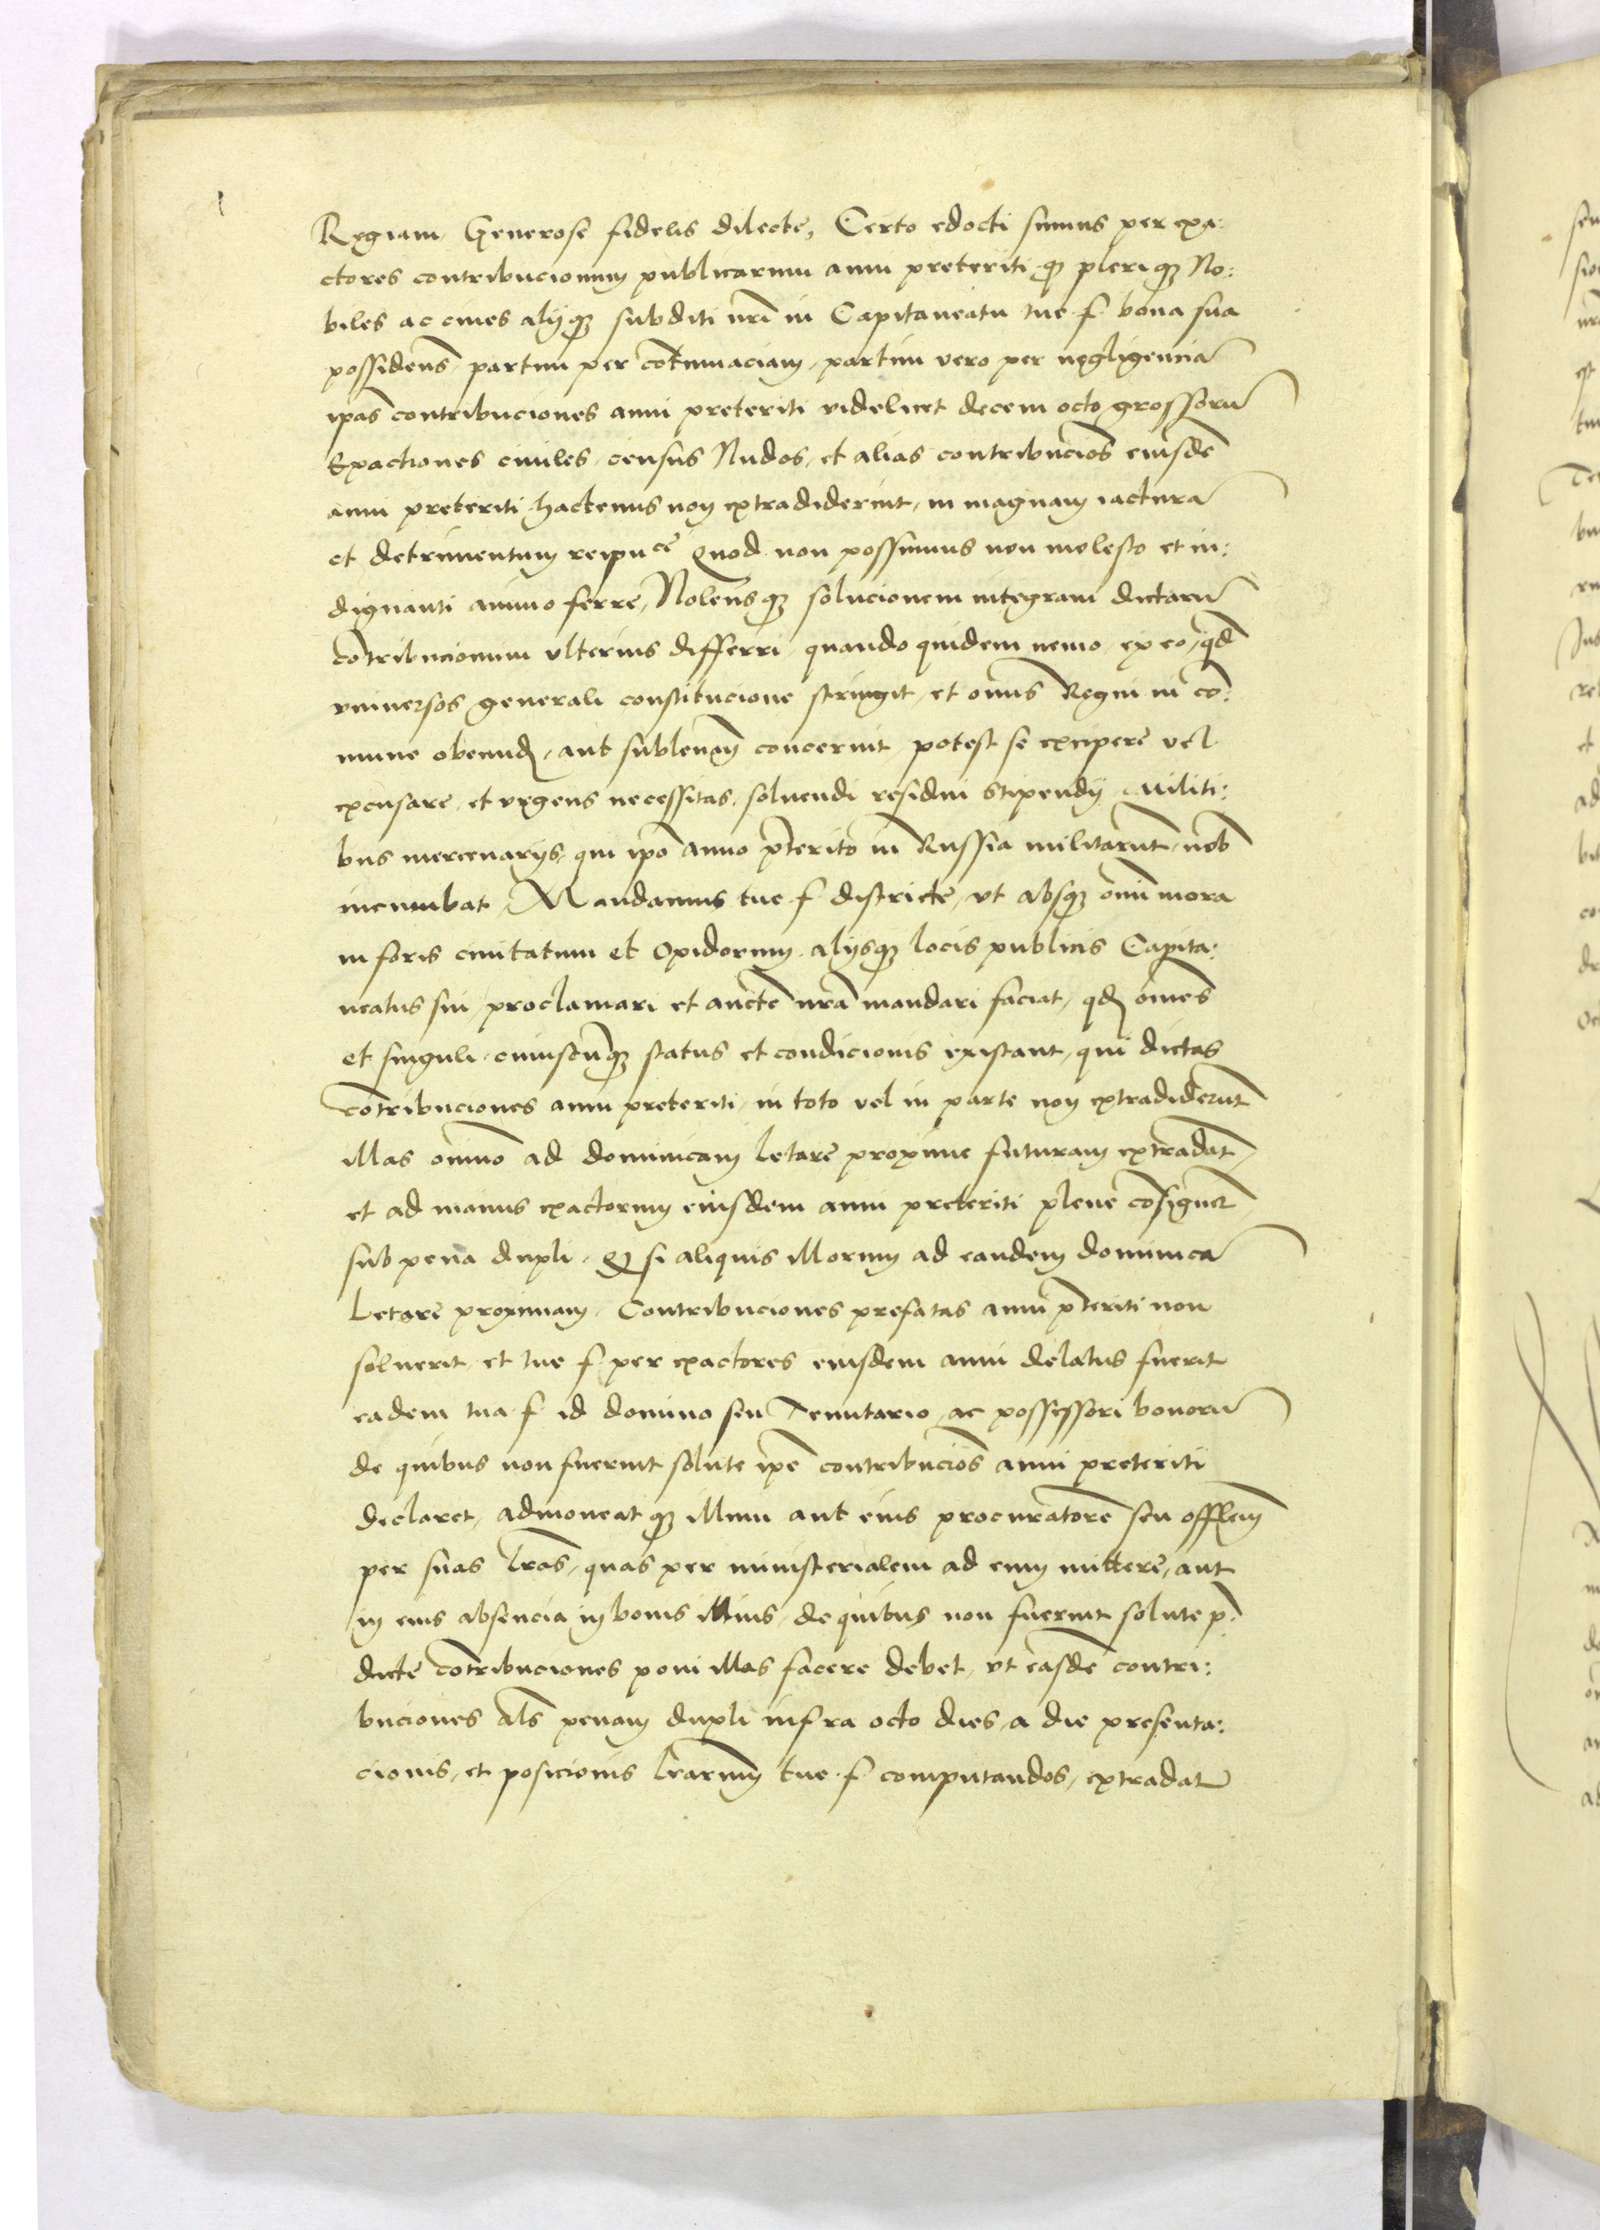 Regiam. Generose fidelis dilecte, Certo edocti sumus per exa:
ctores contribucionum publicarum anni preteriti, qꝫ pleriqꝫ No:
biles ac ciues alijqꝫ subditi nri in Capitaneatu tue f bona sua
possidens partim per cotumaciam, partim vero per negligencia
ipas contribuciones anni preteriti videlicet decem octo grossoru
Exactiones ciuiles, census Nudos, et alias contribucios eiusde
anni preteriti hactenus non extradiderint, in magnam iactura
et detrimentum reipuce Quod non possumus non molesto et in:
dignanti animo ferre, Nolensqꝫ solucionem integram dictaru
cotribucionum vlterius differri, quando quidem nemo, ex eo, qd
vniuersos generali constitucione stringit, et onus Regni in co:
mune obeund, aut subleuam concernit potest se excipere vel
excusare, et vrgens necessitas, soluendi residui stipendij Militi:
bus mercenarijs, qui ipo anno pterito in Russia militarunt, nob
incumbat, Mandamus tue f districte, vt absqꝫ omi mora
in foris ciuitatum et Opidorum, alijsqꝫ locis publicis Capita:
neatus sui, proclamari et aucte nra mandari faciat, qd omes
et singuli, cuiuscunqꝫ status et condicionis existant, qui dictas
cotribuciones anni preteriti, in toto vel in parte non extradiderunt
illas omino ad dominicam letare proxime futuram extradat,
et ad manus exactorum eiusdem anni preteriti plene cosignet
sub pena dupli, Qꝫ si aliquis illorum ad eandem dominica
Letare proximam, Contribuciones prefatas anni pteriti non
soluerit, et tue f per exactores eiusdem anni delatus fuerit
eadem tua f id domino seu Tenutario, ac possessori bonoru
de quibus non fuerint solute ipe contribucios anni preteriti
declaret, admoneat qꝫ illum aut eius procuratore seu offlem
per suas lras, quas per ministerialem ad eum mittere, aut
in eius absencia in bonis illius, de quibus non fuerint solute p:
dicte cotribuciones poni illas facere debet, vt easde contri:
buciones als penam dupli infra octo dies, a die presenta:
cionis, et posicionis lrarum tue f computandos, extradat